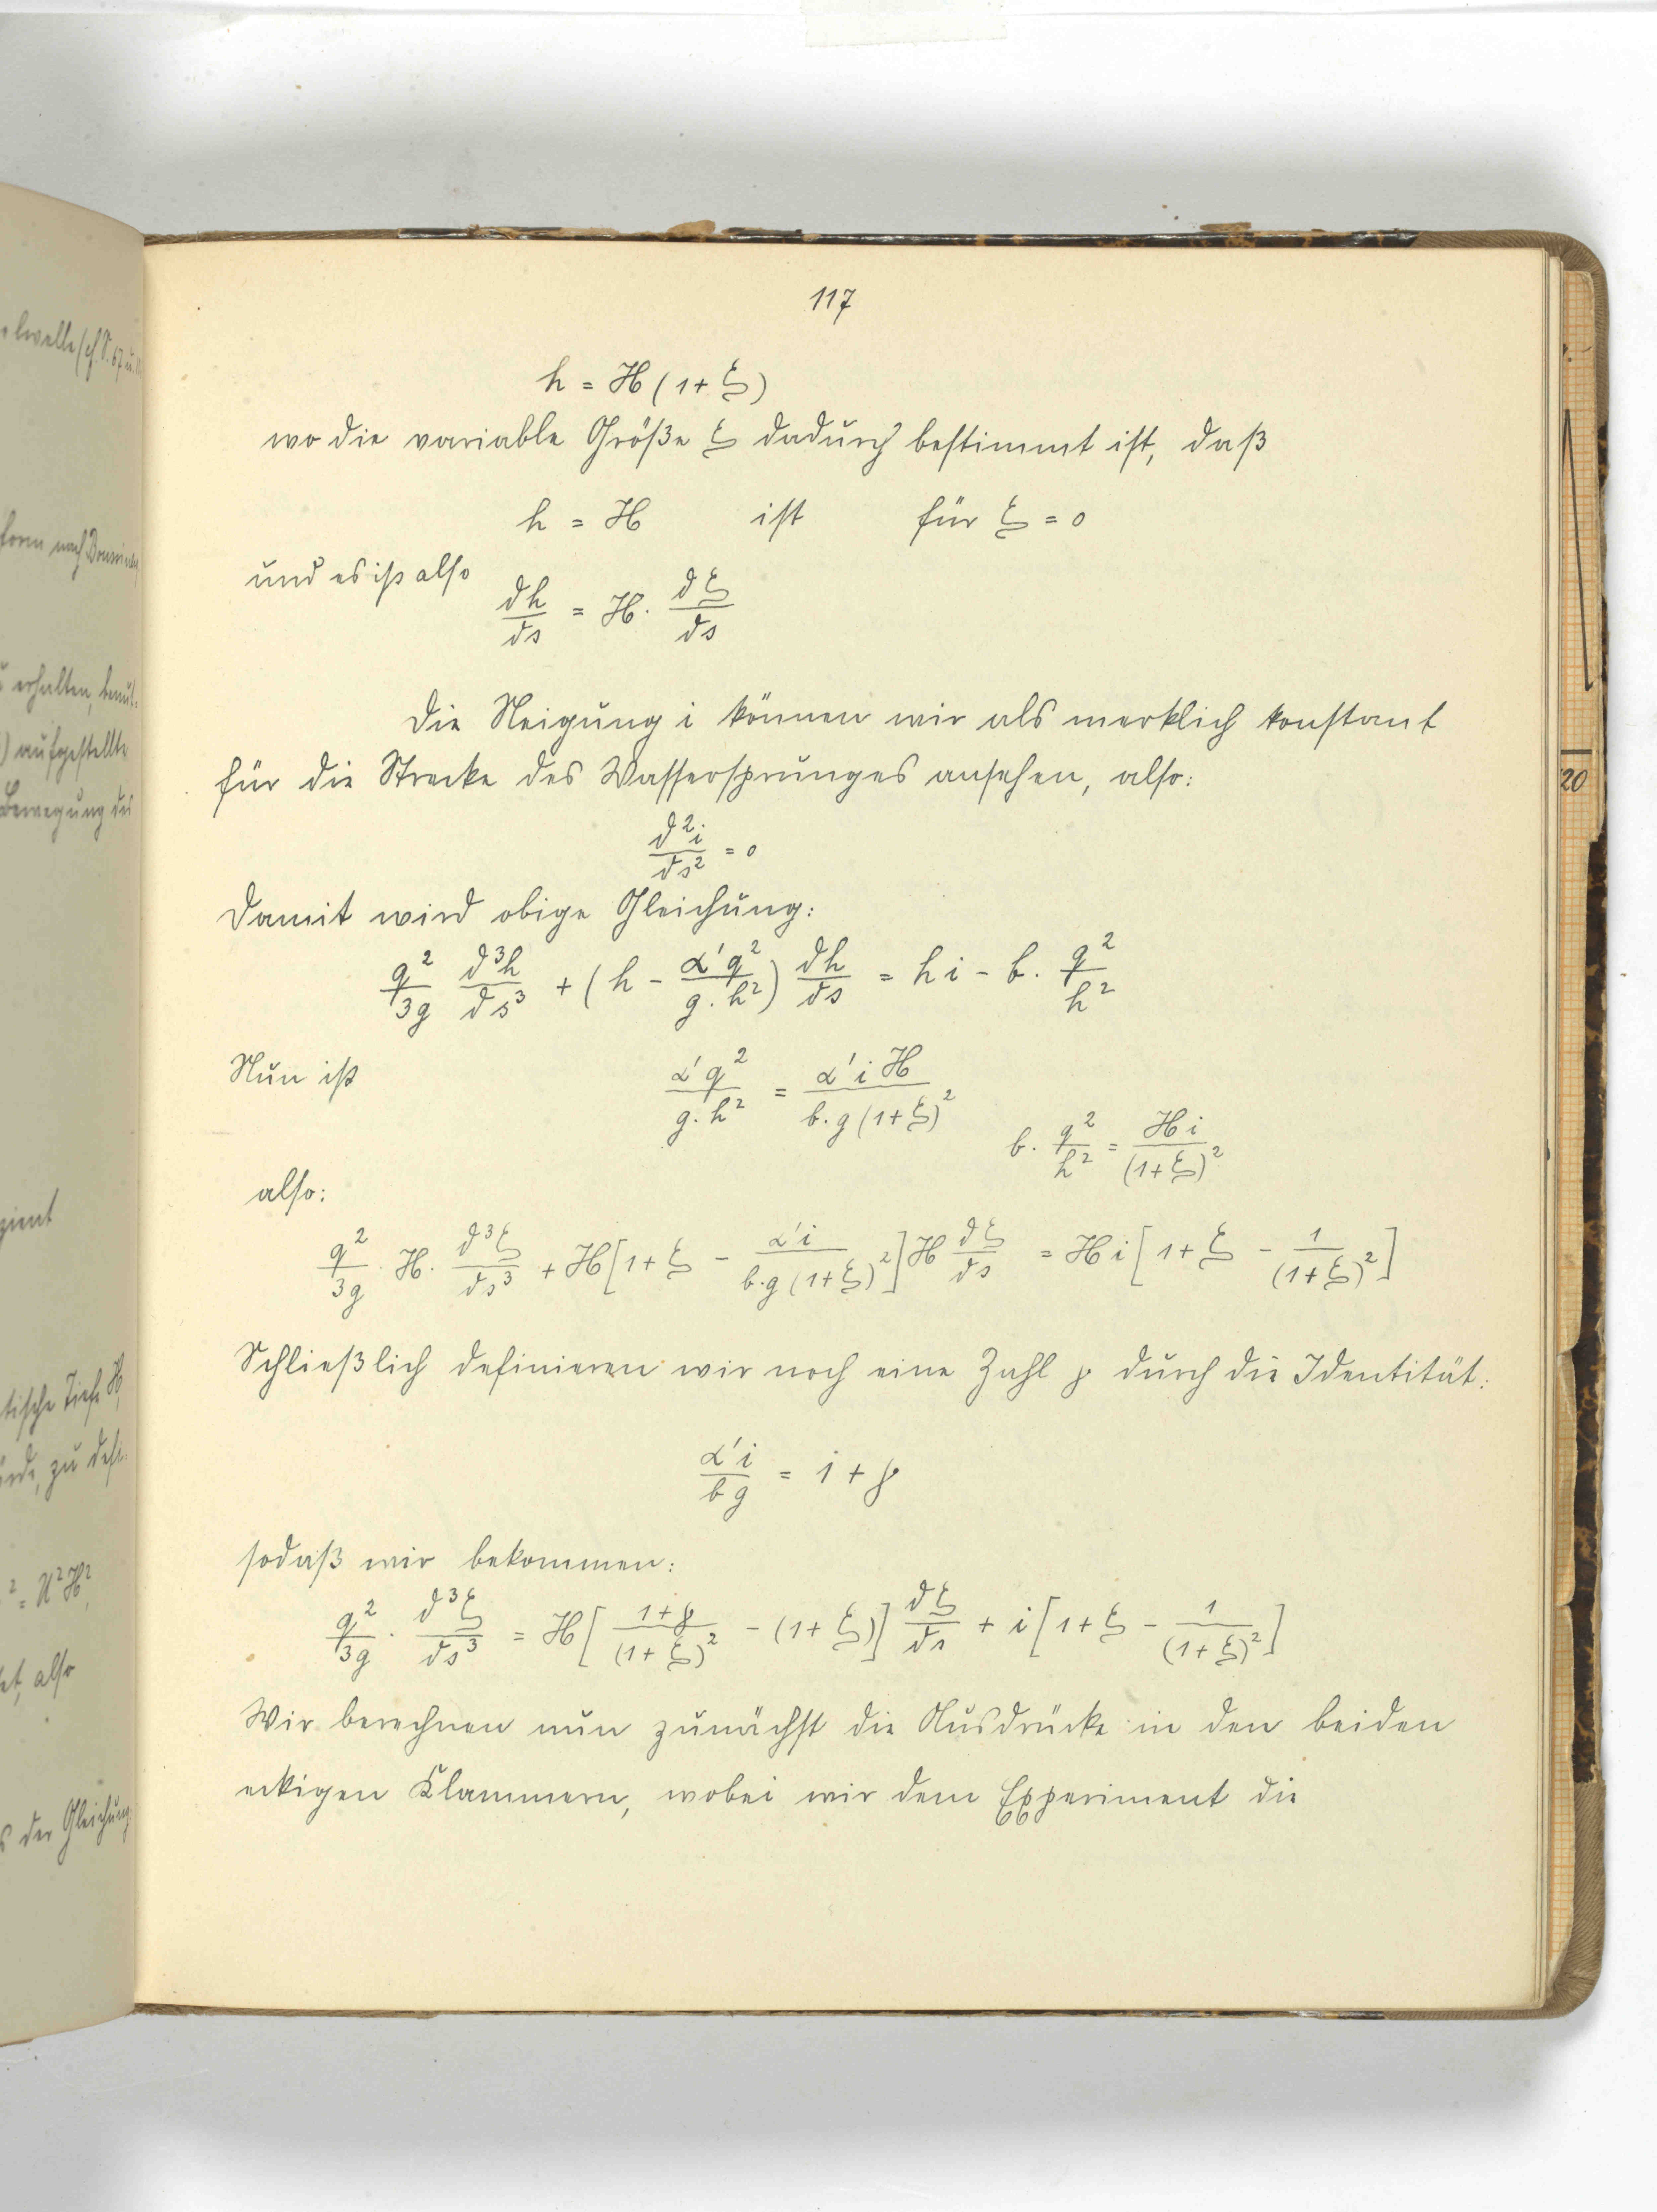 117
h = H (1 + ξ)
wo die variable Größe ξ dadurch bestimmt ist, daß
h = H ist für ξ = 0
und es ist also
dh/ds = H · dξ/ds
Die Neigung i können wir als merklich konstant
für die Strecke des Wassersprunges ansehen, also:
d²i/ds² = 0
Damit wird obige Gleichung:
q²/3g d³h/ds³ + (h - α'q²/g.h²) dh/ds = h i - b. q²/h²
Nun ist α'q²/g.h² = α'i H/b.g (1+ξ)²
b. q²/h² = H i/(1+ξ)²
also:
q²/3g · H · d³ξ/ds³ + H [1+ξ - α'i/b.g (1+ξ)²] H dξ/ds = H i [1+ξ - 1/(1+ξ)²]
Schließlich definieren wir noch eine Zahl γ durch die Identität:
α'i/bg = 1 + γ
sodaß wir bekommen:
q²/3g · d³ξ/ds³ = H [1+γ/(1+ξ)² - (1+ξ)] dξ/ds + i [1+ξ - 1/(1+ξ)²]
Wir berechnen nun zunächst die Ausdrücke in den beiden
eckigen Klammern, wobei wir dem Experiment die
form nach
erhalten,
aufgestellte
Bewegung der
zient
tische Tiefe H,
² = U²H²,
et, also
s der Gleichung
20